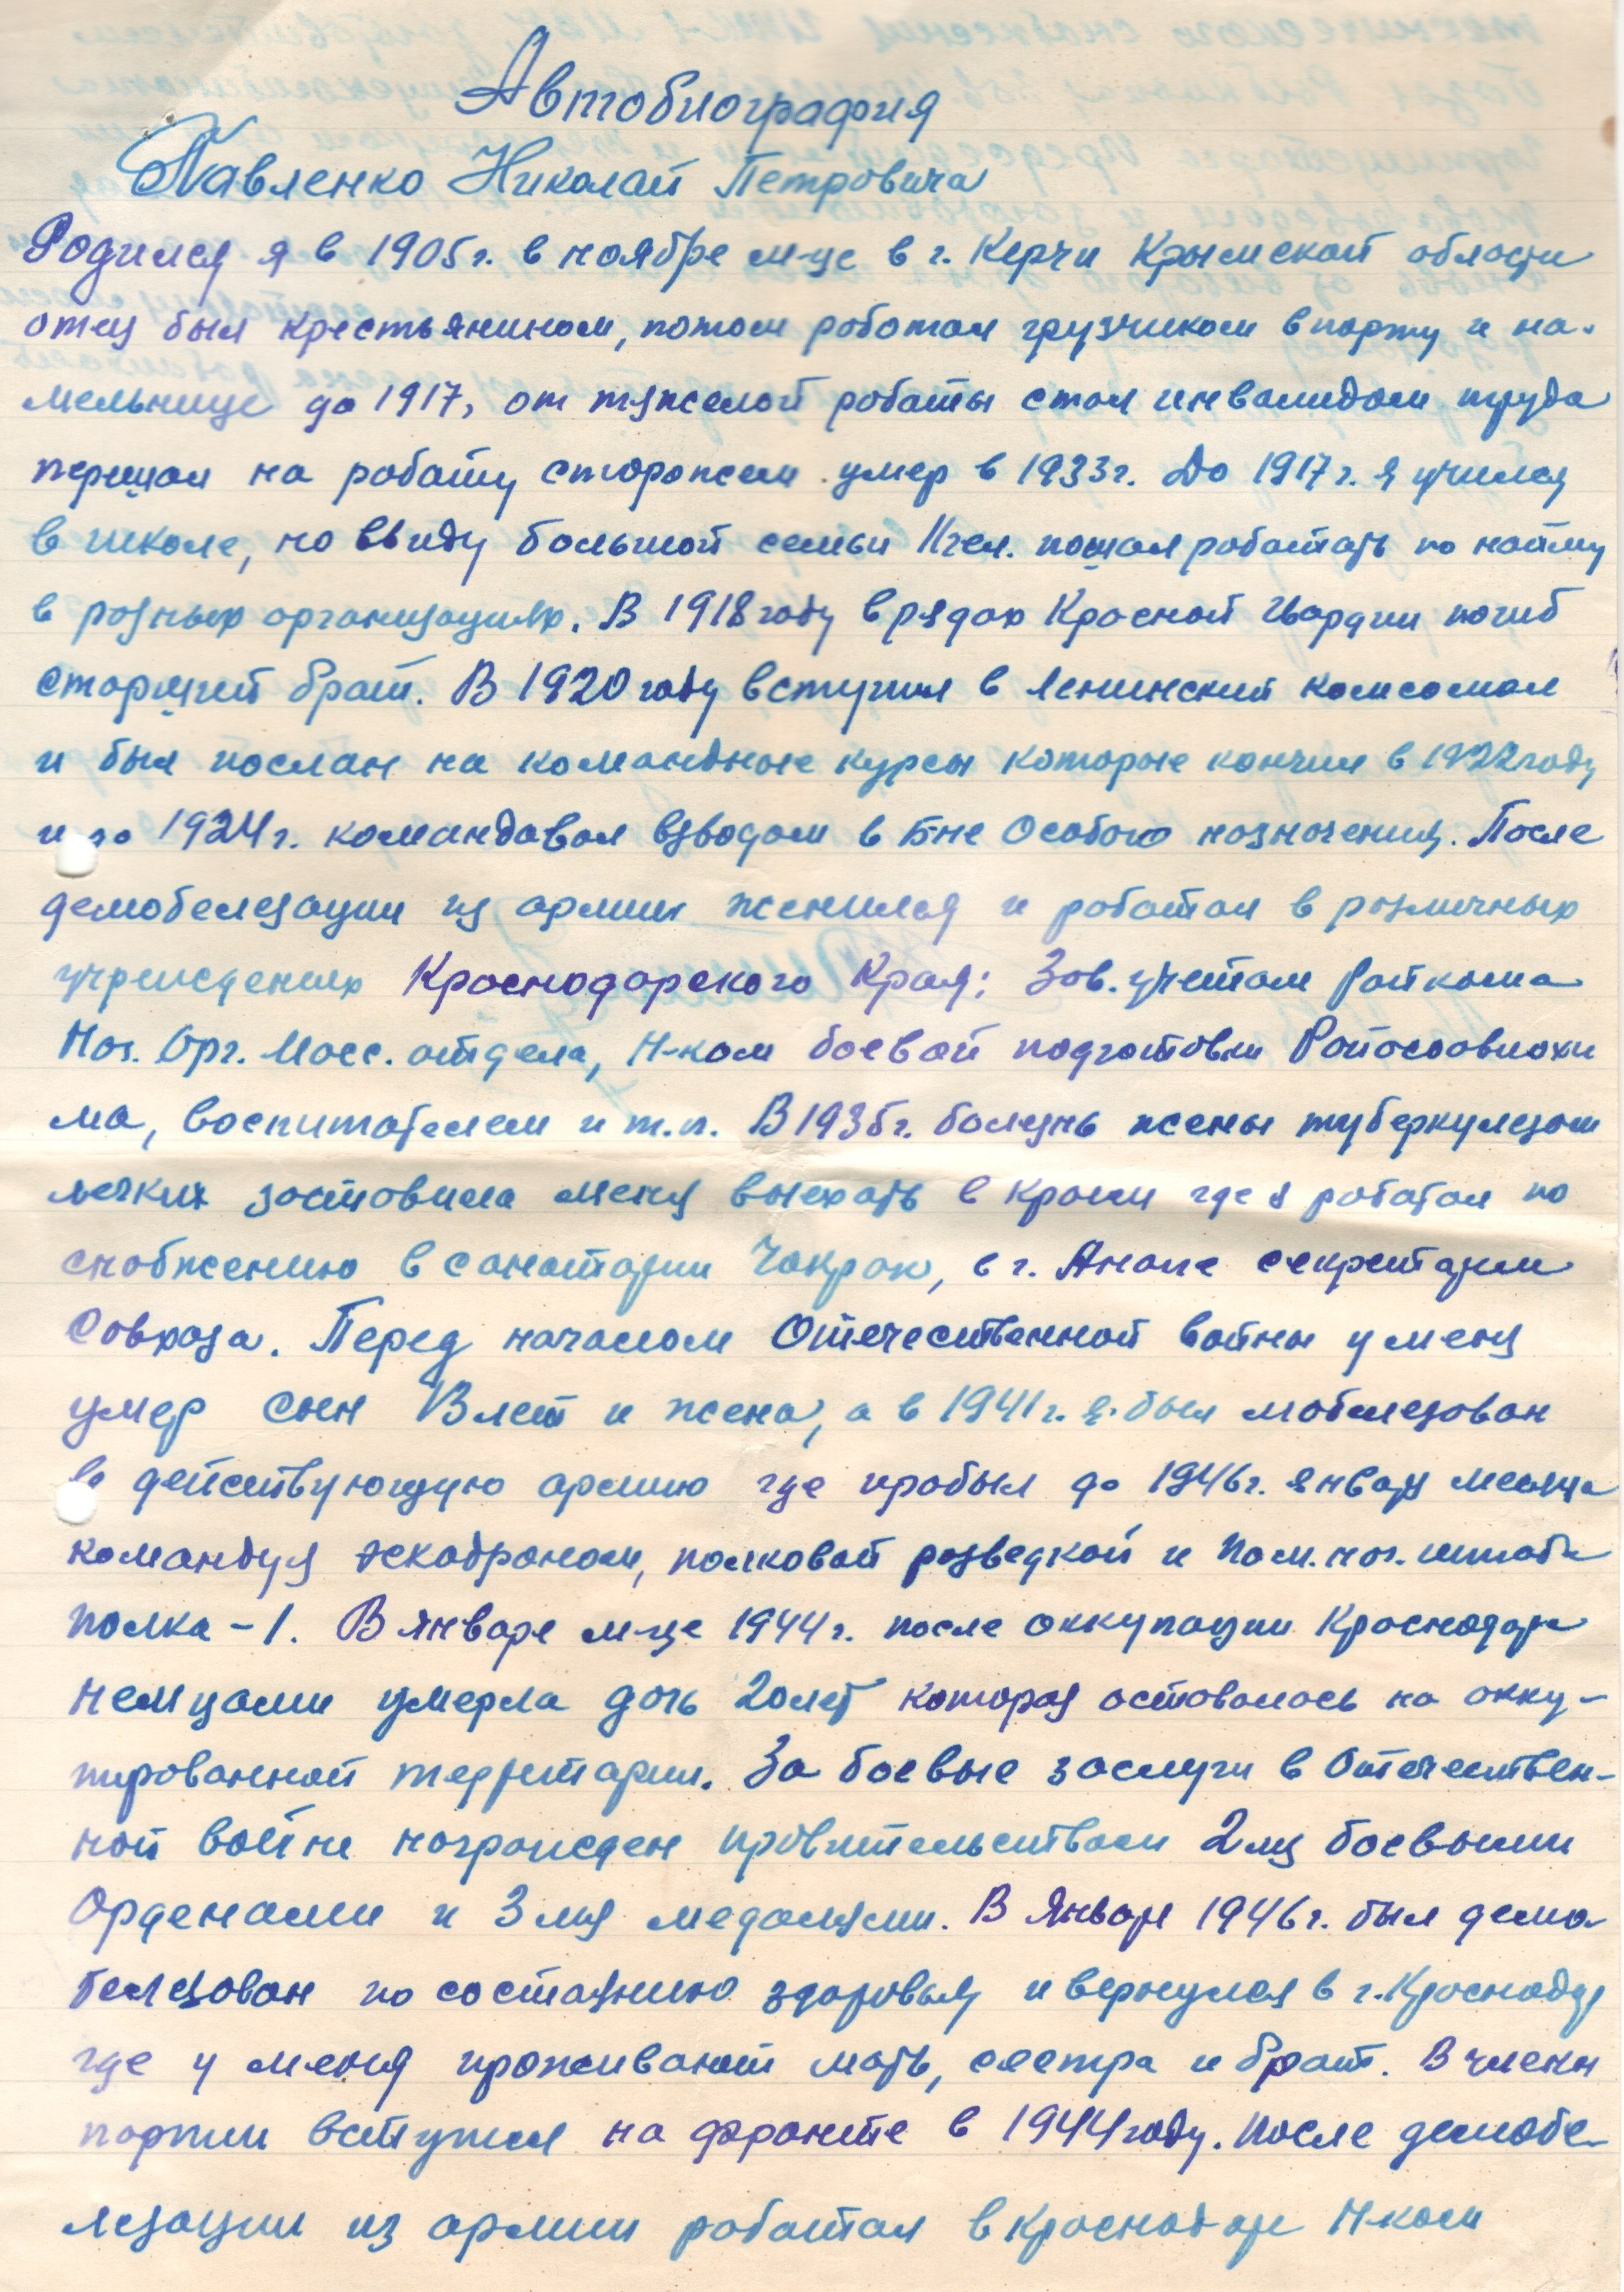 Автобиография
Павленко Николай Петровича
Родился я в 1905г. в ноябре м-це в г. Керчи Крымской области
отец был крестьянином, потом работал грузчиком в порту и на.
мельнице до 1917, от тяжелой работы стал инвалидом труда
перешол на работу сторожем умер в 1933г. До 1917г. я учился
в школе, но ввиду большой семьи 11чел. пошол работать по найму
в разных организациях. В 1918 году в рядах Красной Гвардии погиб
старший брат. В 1920 году вступил в Ленинский комсомол
и был послан на командные курсы которые кончил в 1922 году
и до 1924г. командовал взводом в Б-не Особого назначения. После
демобелезации из армии женился и работал в различных
учреждениях Краснодарского Края: Зав. учетом Райкома
Нач. Орг. Масс. отдела, Н-ком боевой подготовки Райосоовиахи
ма, воспитателем и т.п. В 1935г. болезнь жены туберкулезом
легких заставила меня выехать в Крым где я работал по
снабжению в санатории Чокрак, в г. Анапе секретарем
Совхоза. Перед началом Отечественной войны у меня
умер сын 13 лет и жена, а в 1941г. я был мобилезован
в действующую армию где пробыл до 1946г. января месяца
командуя эскадроном, полковой разведкой и Пом. нач. штаба
полка - 1. В январе м-це 1944г. после оккупации Краснодара
немцами умерла дочь 20лет которая оставалось на окку-
пированной территории. За боевые заслуги в Отечествен-
ной войне награжден правительством 2мя боевыми
Орденами и 3мя медалями. В Январе 1946г. был демо
белезован по состаянию здоровья и вернулся в г. Краснодар
где у меня проживают мать, сестра и брат. В члены
партии вступил на фронте в 1944 году. После демобе-
лезации из армии работал в Краснодаре Н-ком